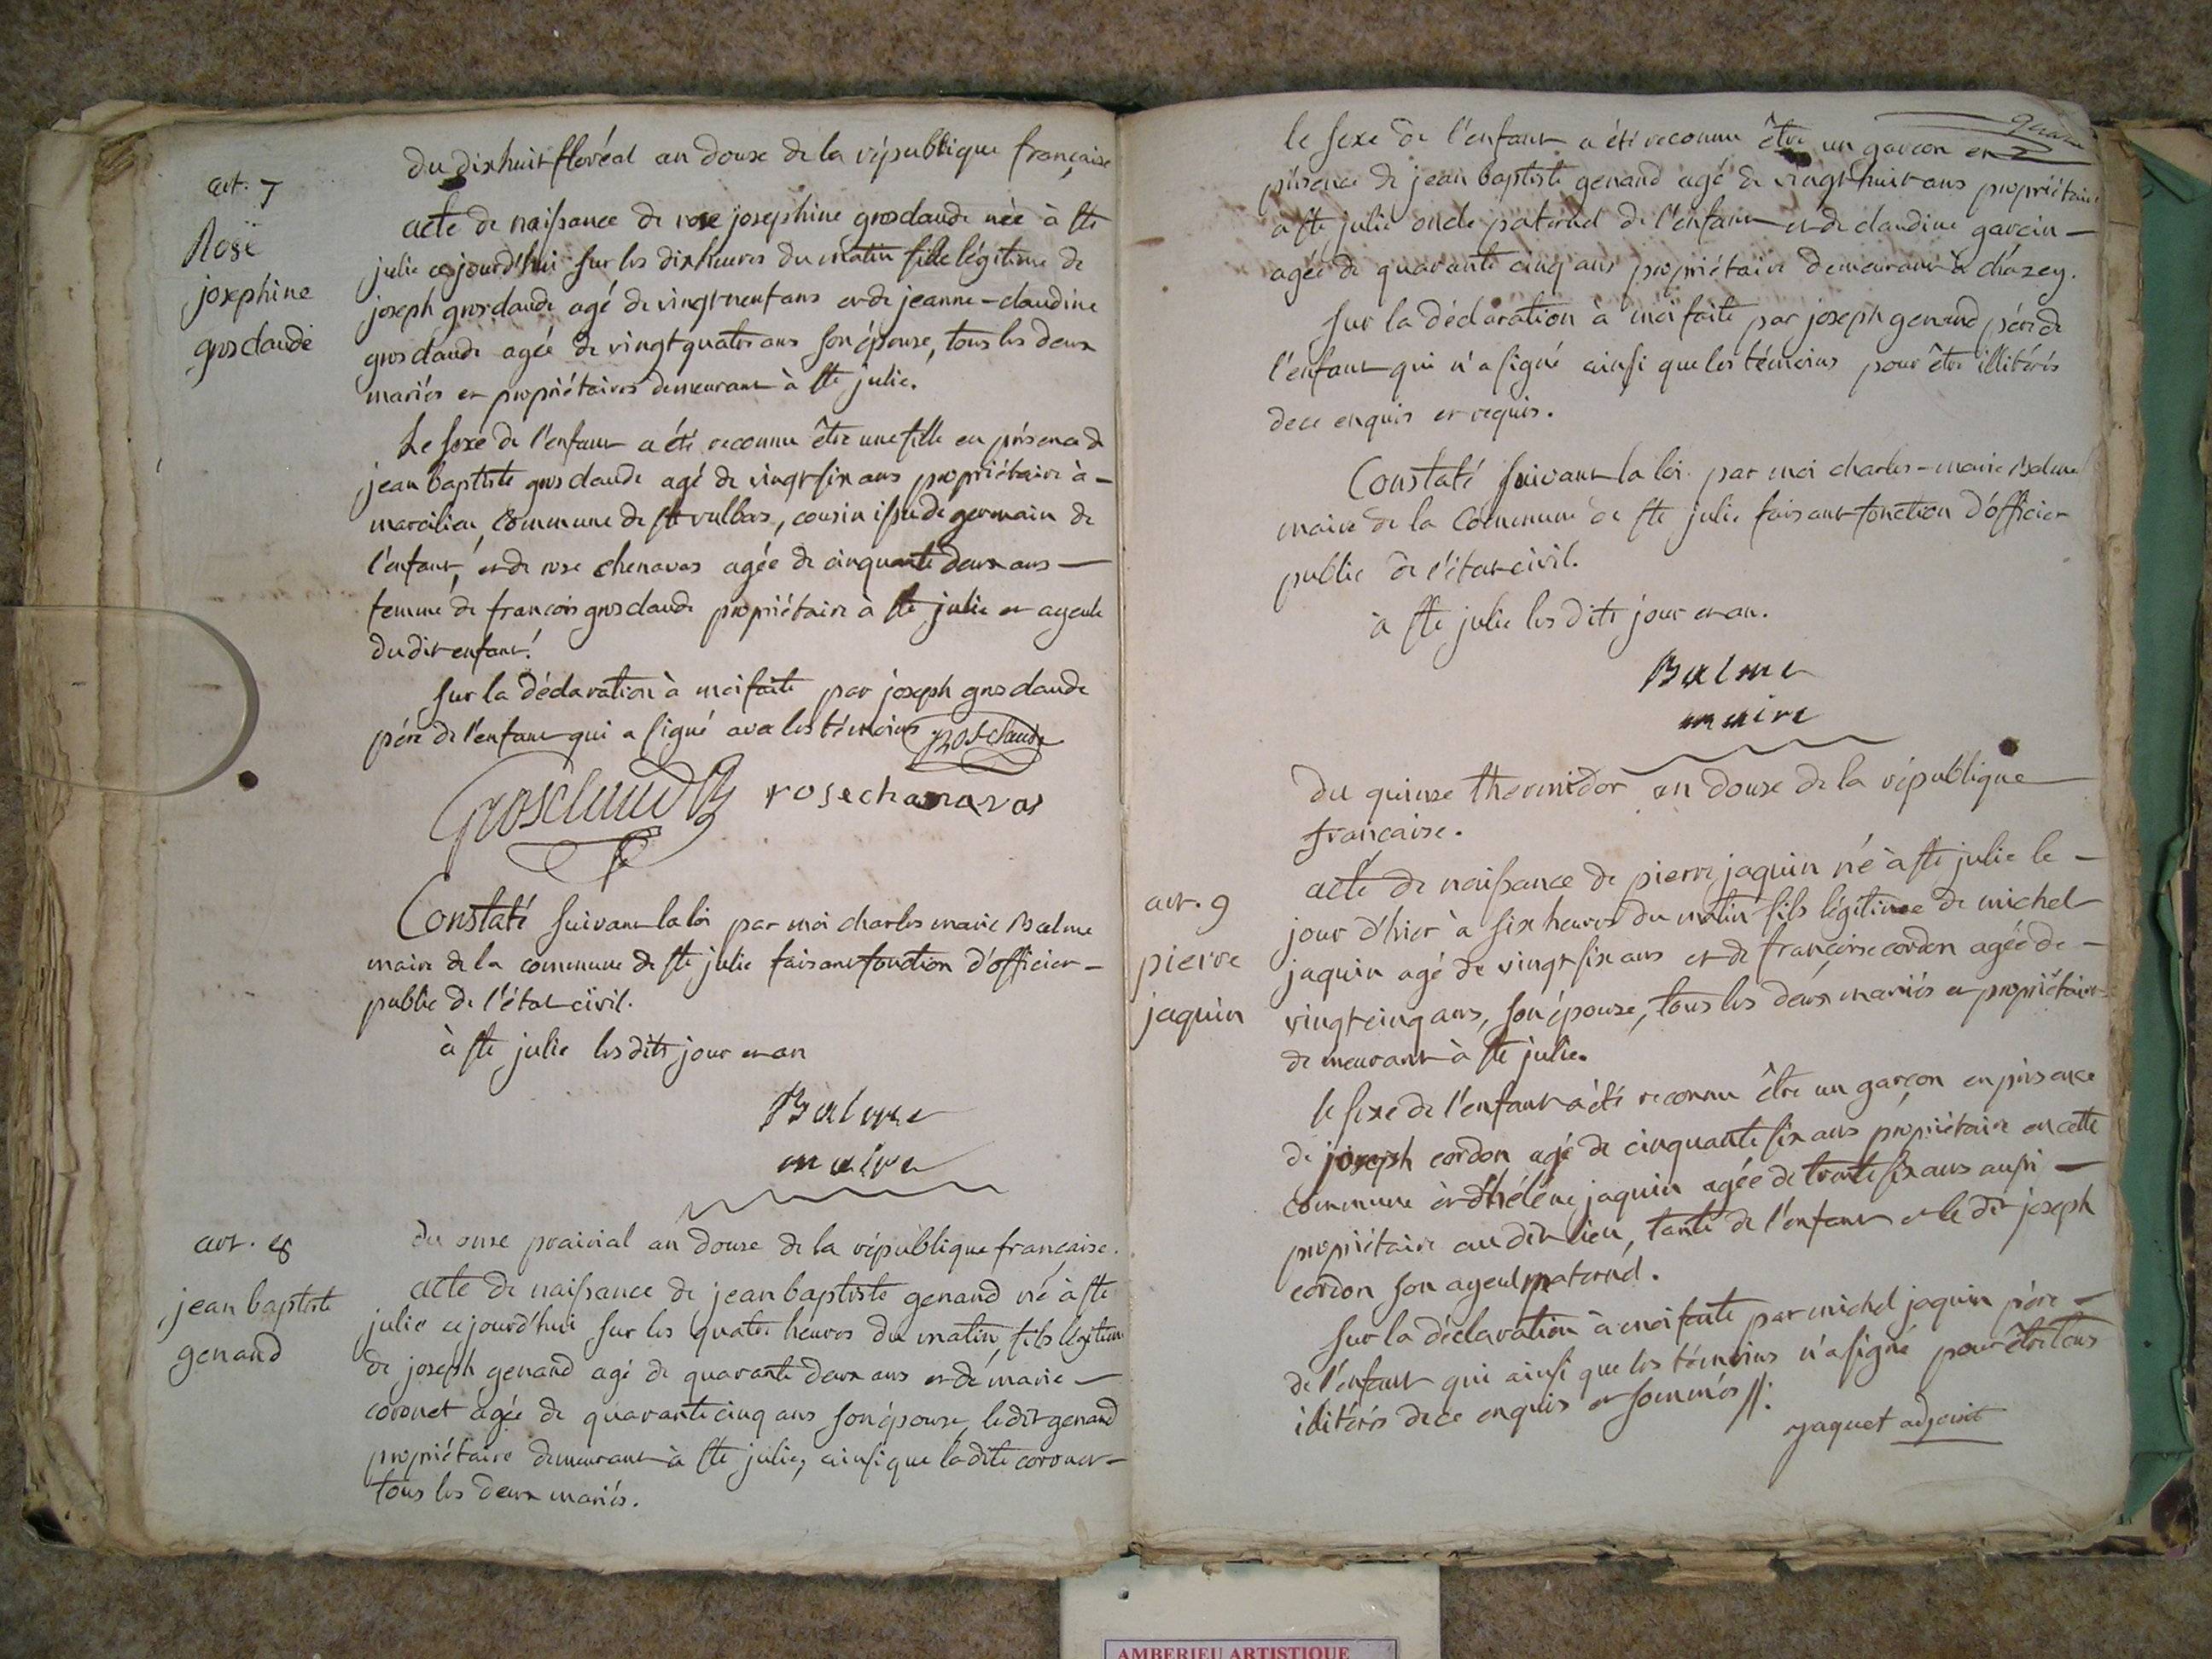 art. 7
Rose
josephine
grosclaude
du dixhuit floréal an douze de la république française
acte de naissance de rose josephine grosclaude née à ste
julie cejourd'hui sur les dix heures du matin fille légitime de
joseph grosclaude agé de vingt neuf ans et de jeanne-claudine
grosclaude agée de vingt quatre ans son épouse, tous les deux
mariés et propriétaires demeurant à ste julie.
Le sexe de l'enfant a été reconnu être une fille en présence de
jean baptiste grosclaude agé de vingt six ans propriétaire à -
marcilieu, commune de st vulbas, cousin issu de germain de
l'enfant, et de rose chenavas agée de cinquante deux ans -
femme de francois grosclaude propriétaire à ste julie et ayeule
du dit enfant.
sur la déclaration à moi faite par joseph grosclaude
pére de l'enfant qui a signé avec les témoins grosclaude
Grosclaude rosechanavas
Constaté suivant la loi par moi charles marie Balme
maire de la commune de ste julie faisant fonction d'officier -
public de l'état civil.
à ste julie les dits jour et an
Balme
maire
art. 8
jean baptiste
genand
du onze prairial an douze de la république française.
acte de naissance de jean baptiste genand né à ste
julie cejourd'hui sur les quatre heures du matin, fils légitime
de joseph genand agé de quarante deux ans et de marie -
coronet agée de quarante cinq ans son épouse, le dit genand
propriétaire demeurant à ste julie, ainsi que la dite coronet -
tous les deux mariés.
le sexe de l'enfant a été reconnu être un garcon en
présence de jean baptiste genand agé de vingt huit ans propriétaire
à ste julie oncle paternel de l'enfant et de claudine garcin -
agée de quarante cinq ans propriétaire demeurant à chazey.
Sur la déclaration à moi faite par joseph genand pére de
l'enfant qui n'a signé ainsi que les témoins pour être illitérés
de ce enquis et requis.
Constaté suivant la loi par moi charles-marie Balme
maire de la commune de ste julie faisant fonction d'officier
public de l'état civil.
à ste julie les dits jour et an.
Balme
maire
du quinze thermidor an douze de la république
francaise.
art. 9
pierre
jaquin
acte de naissance de pierre jaquin né à ste julie le -
jour d'hier à six heures du matin fils légitime de michel
jaquin agé de vingt six ans et de françoise cordon agée de -
vingt cinq ans, son épouse, tous les deux mariés et propriétaires
demeurant à ste julie.
le sexe de l'enfant a été reconnu être un garçon en présence
de joseph cordon agé de cinquante six ans propriétaire en cette
commune et d'hélène jaquin agée de trente six ans aussi -
propriétaire au dit lieu, tante de l'enfant et le dit joseph
cordon son ayeul maternel.
sur la déclaration à moi faite par michel jaquin pére -
de l'enfant qui ainsi que les témoins n'a signé pour être tous
ilitérés de ce enquis et sommés //:
jaquet adjoint
AMBERIEU ARTISTIQUE